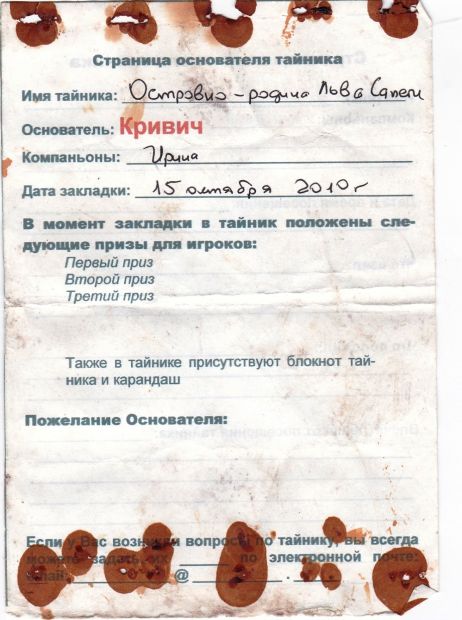 Страница основателя тайника
Имя тайника: Островно - родина Льва Сапеги
Основатель: Кривич
Компаньоны: Ирина
Дата закладки: 15 октября 2010 г
В момент закладки в тайник положены сле-
дующие призы для игроков:
Первый приз
Второй приз
Третий приз
Также в тайнике присутствуют блокнот тай-
ника и карандаш
Пожелание Основателя:
Если у Вас возникли вопросы по тайнику, вы всегда
можете задать их по электронной почте:
@ .